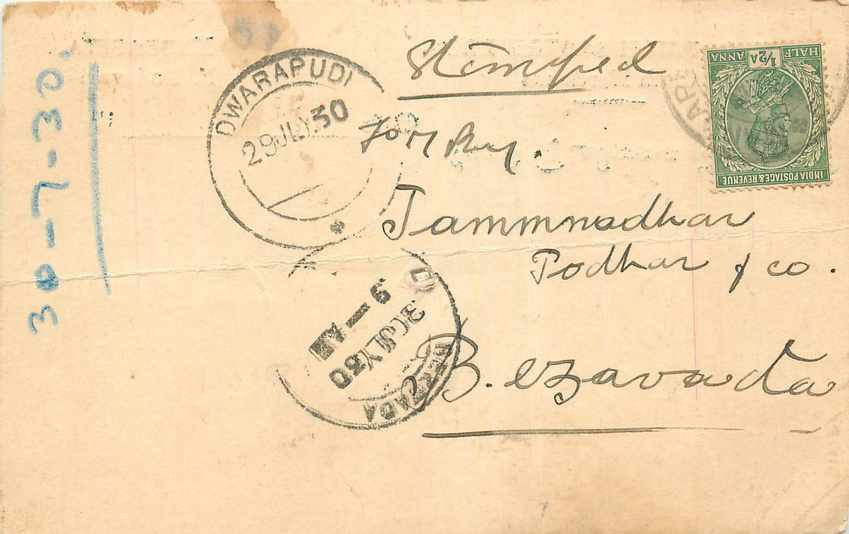 Stamped
HALF 1/2 A ANNA
INDIA POSTAGE & REVENUE
DWARAPUDI
29 JLY. 30
30-7-30.
To M
Jammnadhar
Podhar & co.
Bezavada
9 - AM
30 JLY 30
BEZWADA